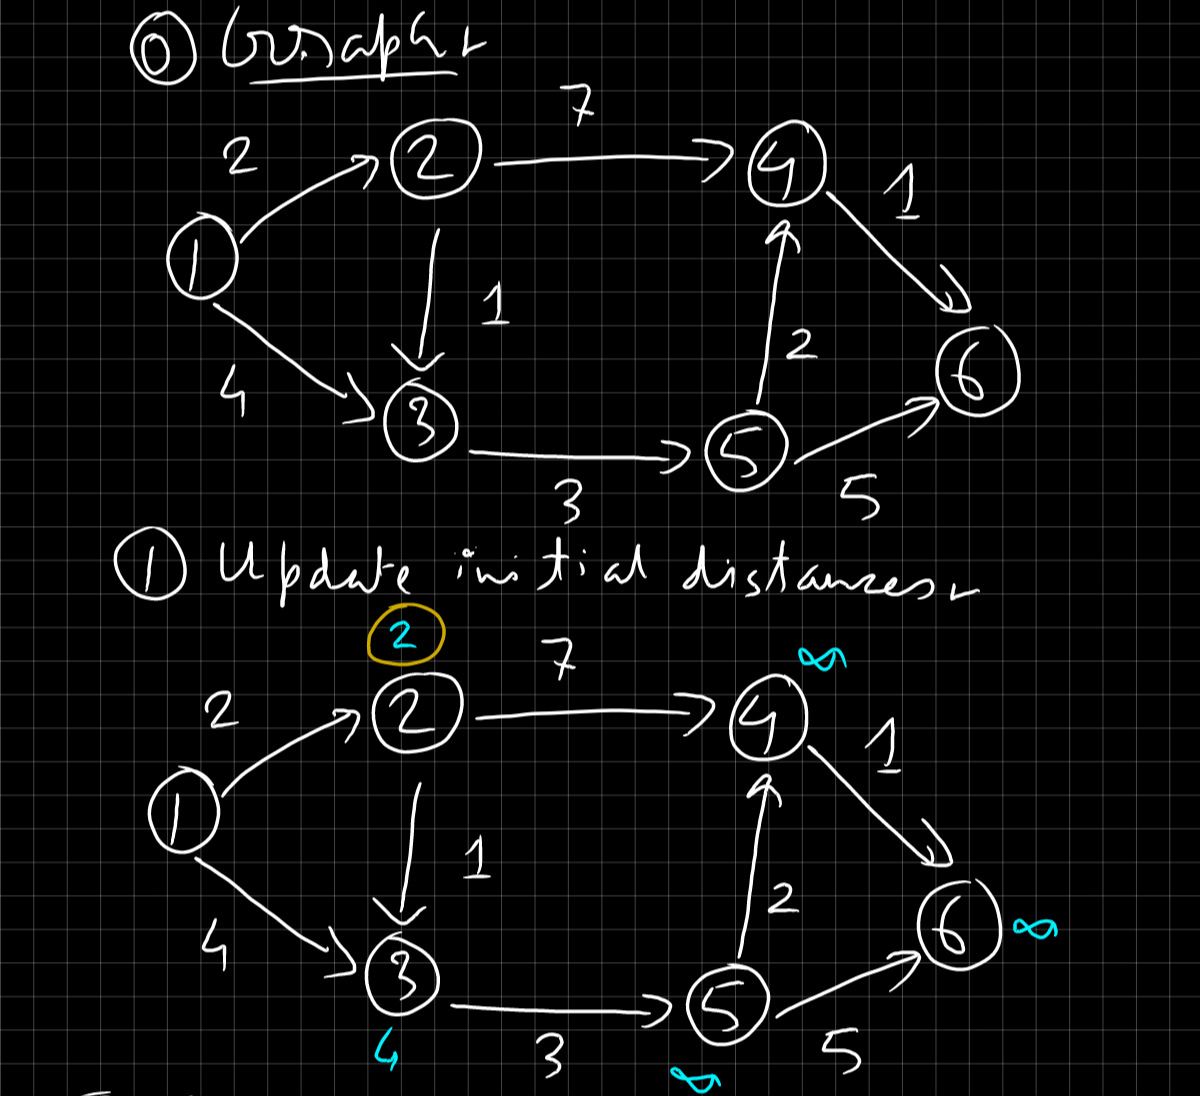 0 Graph
7
2 2 4 1
1
1 2 6
4 3 5
3 5
1 Update initial distances
2
7 ∞
2 2 4 1
1
1 2 6 ∞
4 3 5
4 3 5
∞